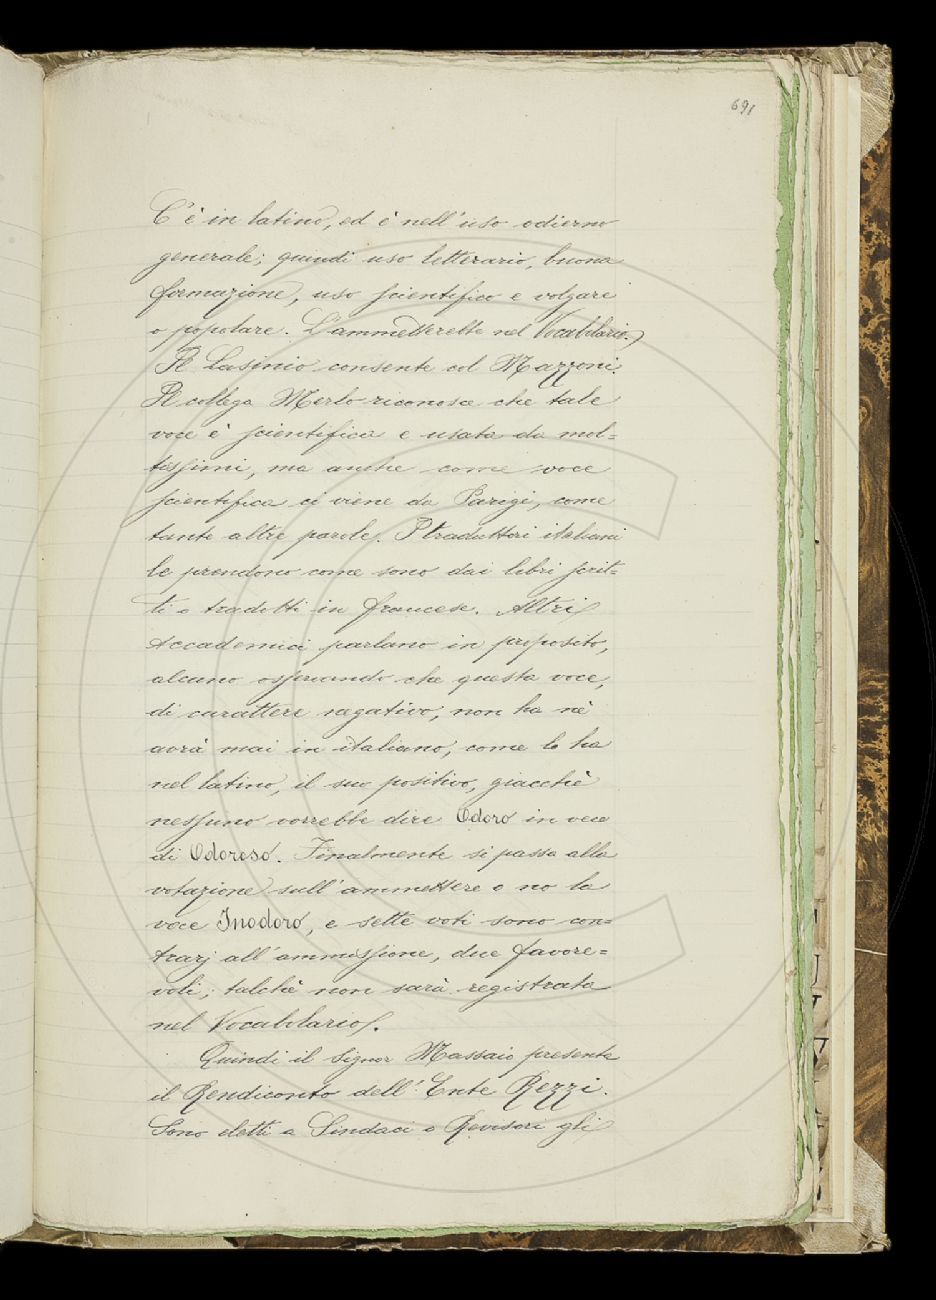 691
C'è in latino, ed è nell'uso odierno
generale; quindi uso letterario, buona
formazione, uso scientifico e volgare
o popolare. L'ammetterebbe nel Vocabolario.
Il Lasinio consente col Mazzoni.
Il collega Merlo riconosce che tale
voce è scientifica e usata da mol=
tissimi, ma anche come voce
scientifica ci viene da Parigi, come
tante altre parole. I traduttori italiani
le prendono come sono dai libri scrit=
ti o tradotti in francese. Altri
Accademici parlano in proposito,
alcuno osservando che questa voce,
di carattere negativo, non ha nè
avrà mai in italiano, come lo ha
nel latino, il suo positivo, giacchè
nessuno vorrebbe dire Odoro in vece
di Odoroso. Finalmente si passa alla
votazione sull'ammettere o no la
voce Inodoro, e sette voti sono con=
trarj all'ammissione, due favore=
voli; talchè non sarà registrata
nel Vocabolario.
Quindi il Signor Massaio presenta
il Rendiconto dell'Ente Rezzi.
Sono eletti a Sindaci e Revisori gli